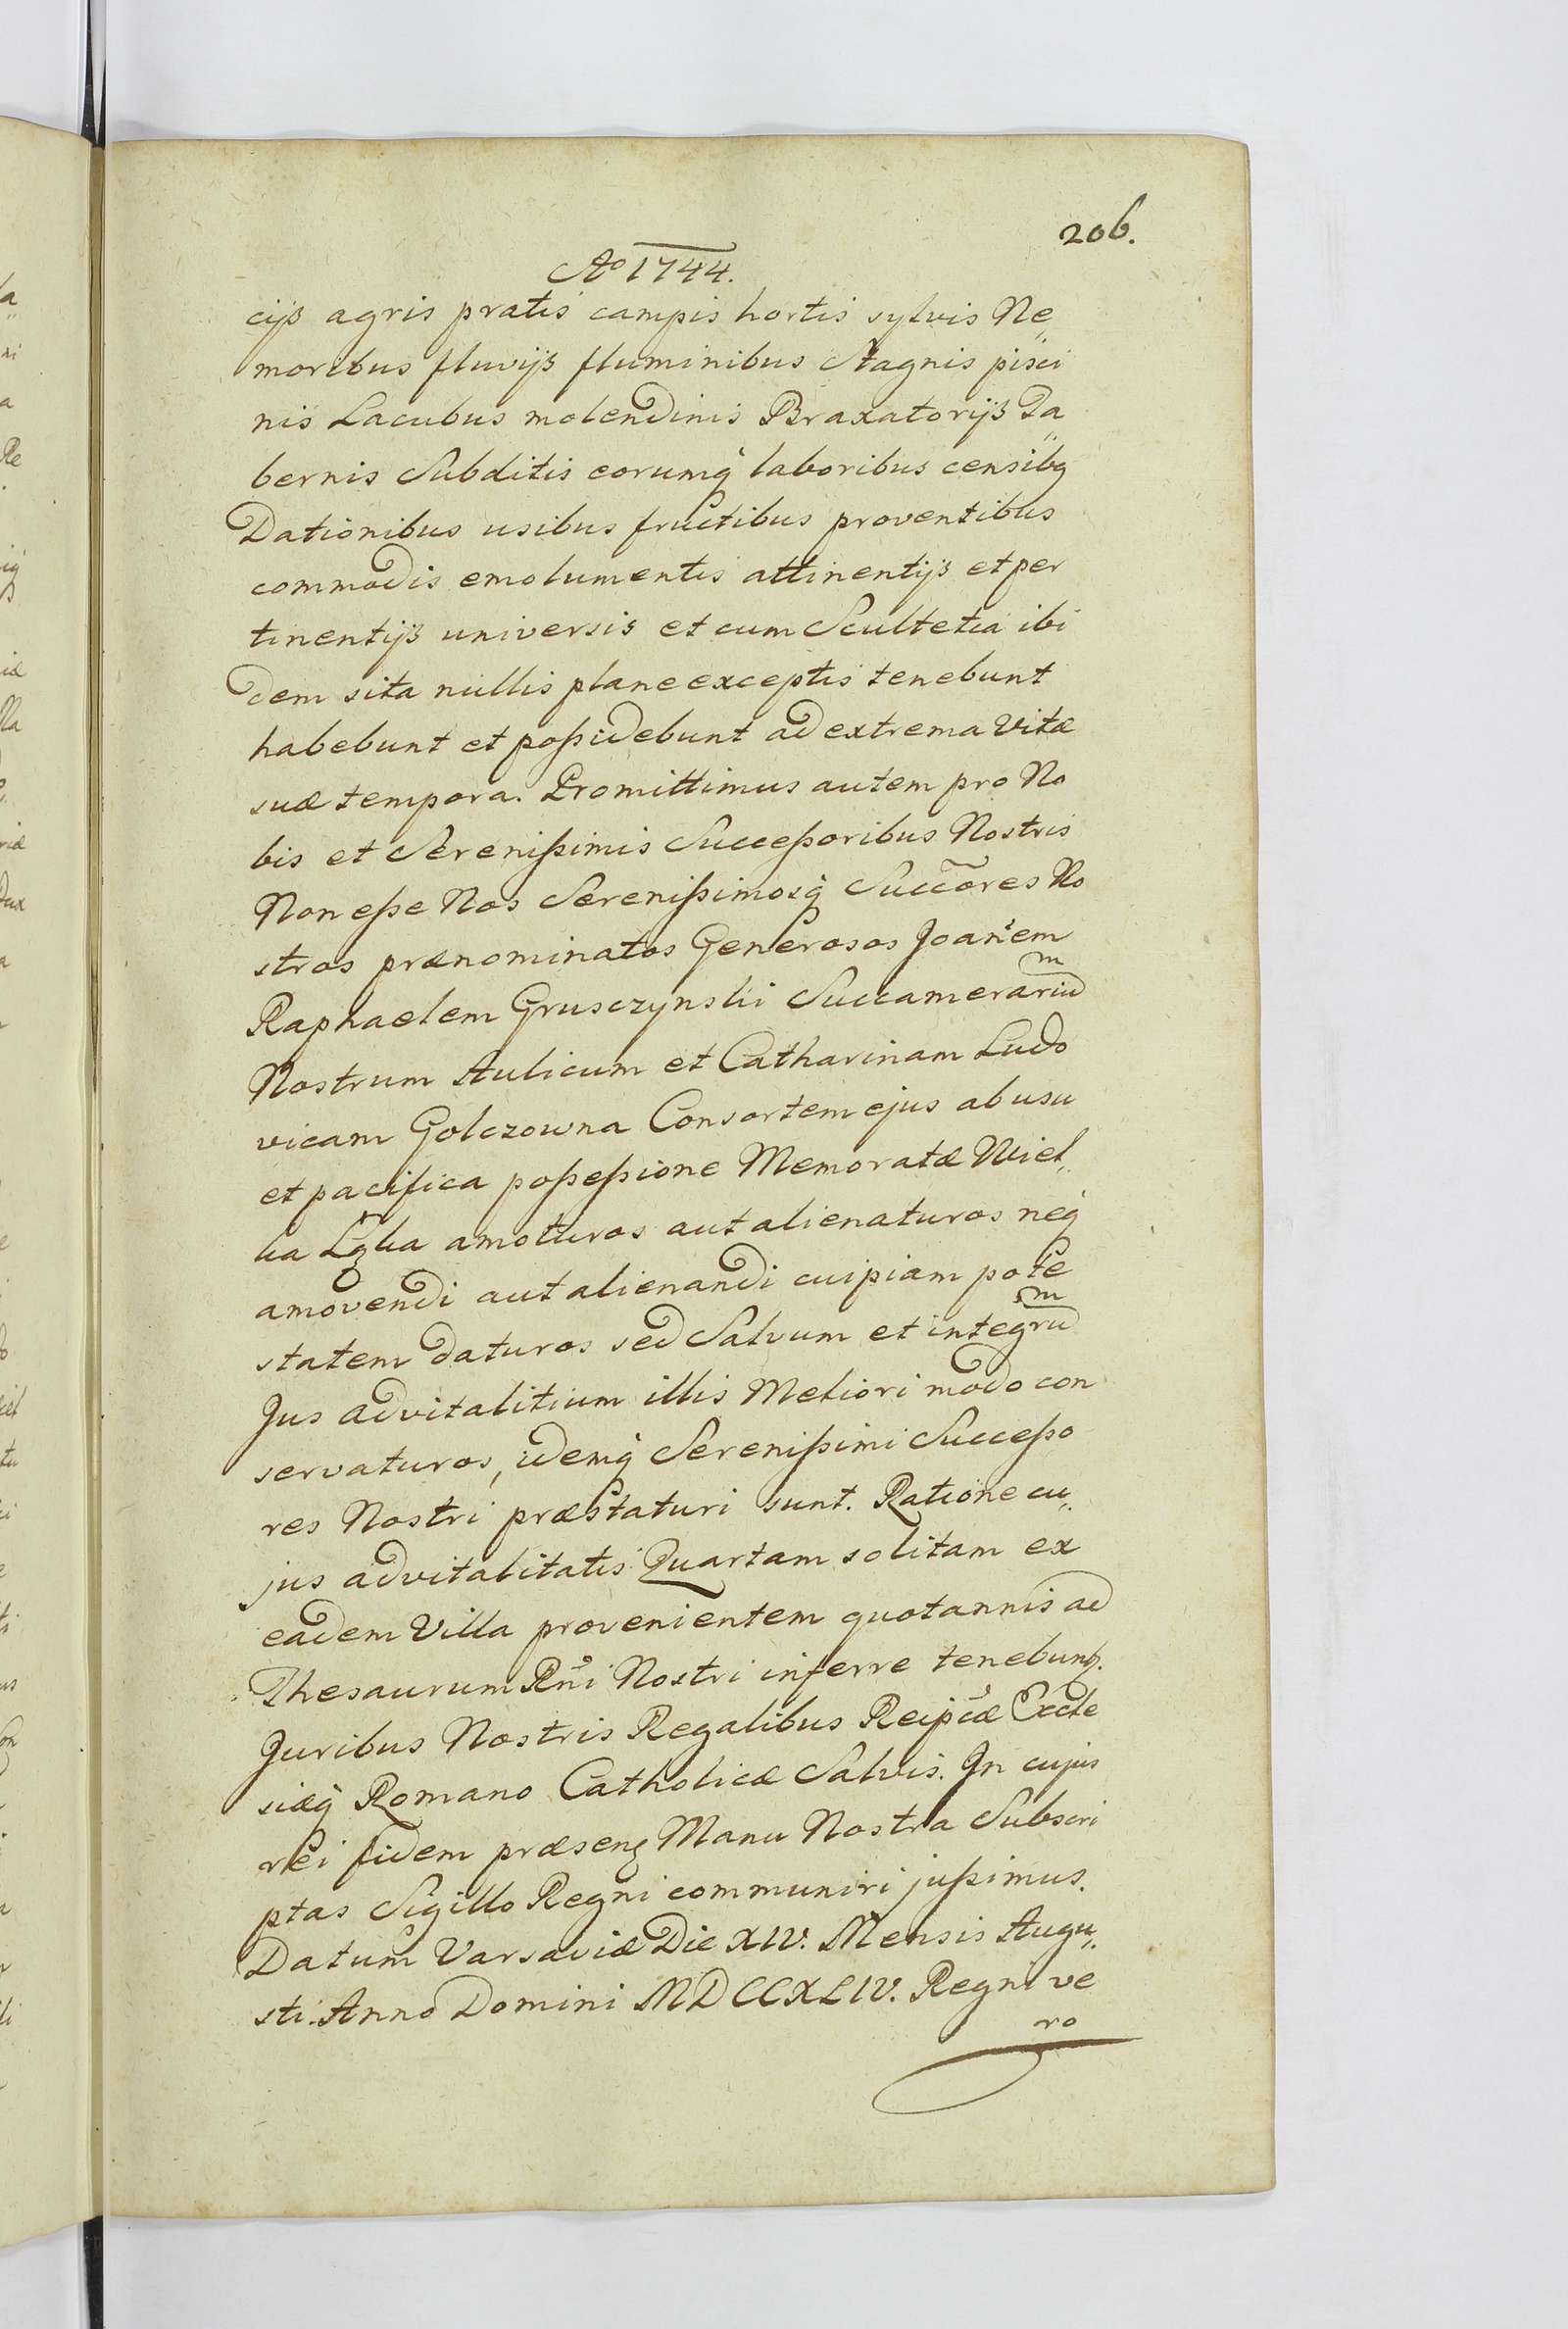 206.
Aº 1744.
cijs agris pratis campis hortis sylvis Ne„
moribus fluvijs fluminibus Stagnis pisci
nis Lacubus molendinis Braxatorijs Ta„
bernis Subditis eorumq́ laboribus censibq
Dationibus usibus fructibus proventibus
commodis emolumentis attinentijs et per
tinentijs universis et cum Scultetia ibi
dem sita nullis plane exceptis tenebunt
habebunt et poßidebunt ad extrema vitæ
suæ tempora. Promittimus autem pro No
bis et Serenißimis Succeßoribus Nostris
Non eße Nos Serenißimosq́ Succ̃ores No
stros prænominatos Generosos Joan̄em
Raphaelem Grusczynski Succamerariũ
Nostrum Aulicum et Catharinam Ludo
vicam Golczowna Consortem ejus ab usu
et pacifica poßeßione Memoratæ Wiel„
ka Łąka amoturos aut alienaturos neq́
amovendi aut alienandi cuipiam pote
statem daturos sed Salvum et integrũ
Jus advitalitium illis Meliori modo con
servaturos, idemq́ Serenißimi Succeßo
res Nostri præstaturi sunt. Ratione cu„
jus advitalitatis Quartam solitam ex
eadem Villa provenientem quotannis ad
Thesaurum Rñi Nostri inferre tenebunt.
Juribus Nostris Regalibus Reipc̃æ Eccle
siæq́ Romano Catholicæ Salvis. In cujus
rei fidem præsenꝫ Manu Nostra Subscri
ptas Sigillo Regni communiri jußimus.
Datum Varsaviæ Die XIV. Mensis Augu„
sti. Anno Domini MDCCXLIV. Regni ve
ro